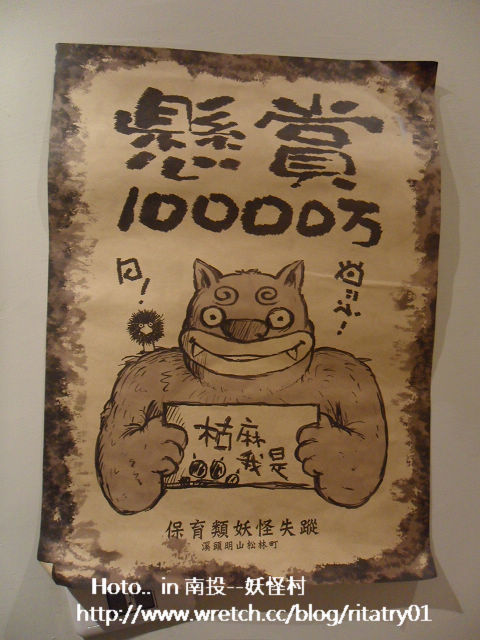 懸賞
10000万
枯麻
我是
保育類妖怪失蹤
溪頭明山松林町
Hoto.. in 南投--妖怪村
http://www.wretch.cc/blog/ritatry01